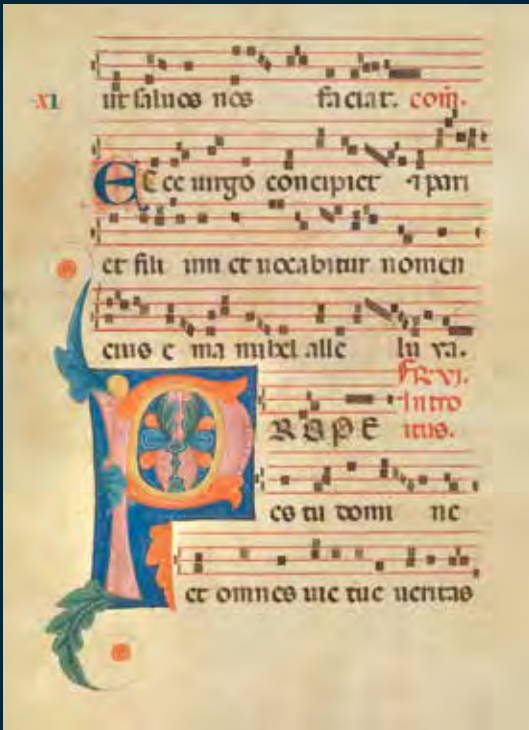 XI ut saluos nos faciat. com̄.
Ecce uirgo concipiet ⁊ pari
et fili um et uocabitur nomen
eius e ma nuhel alle lu ya.
FR. VI.
Intro
PROPE itus.
es tu domi ne
et omnes uie tue ueritas